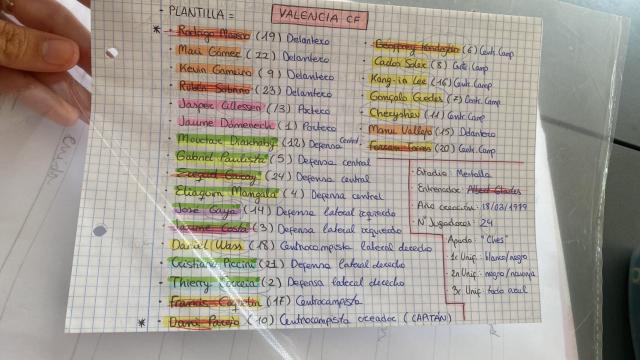 - PLANTILLA = VALENCIA CF
* - Rodrigo Moreno (19) Delantero
- Maxi Gómez (22) Delantero
- Kevin Gameiro (9) Delantero
- Rubén Sobrino (23) Delantero
- Jasper Cillessen (13) Portero
- Jaume Domenech (1) Portero
- Mouctar Diakhaby (12) Defensa Central
- Gabriel Paulista (5) Defensa central
- Ezequiel Garay (24) Defensa central
- Eliaquim Mangala (4) Defensa central
- Jose Gaya (14) Defensa lateral izquierdo
- Jaume Costa (3) Defensa lateral izquierdo
- Daniel Wass (18) Centrocampista lateral derecho
- Cristiano Piccini (21) Defensa lateral derecho
- Thierry Correia (2) Defensa lateral derecho
- Francis Coquelin (17) Centrocampista
* - Dani Parejo (10) Centrocampista creador (CAPITAN)
- Geoffrey Kondogbia (6) Centr. Camp
- Carlos Soler (8) Centr. Camp
- Kang-in Lee (16) Centr. Camp
- Gonçalo Guedes (7) Centr. Camp
- Cheryshev (11) Centr. Camp
- Manu Vallejo (15) Delantero
- Ferran Torres (20) Centr. Camp
- Estadio: Mestalla
- Entrenador: Albert Celades
- Año creación: 18/03/1919
- Nº Jugadores: 24
Apodo: "Ches"
1ª Unif: blanco/negro
2ª Unif: negro/naranja
3ª Unif: todo azul